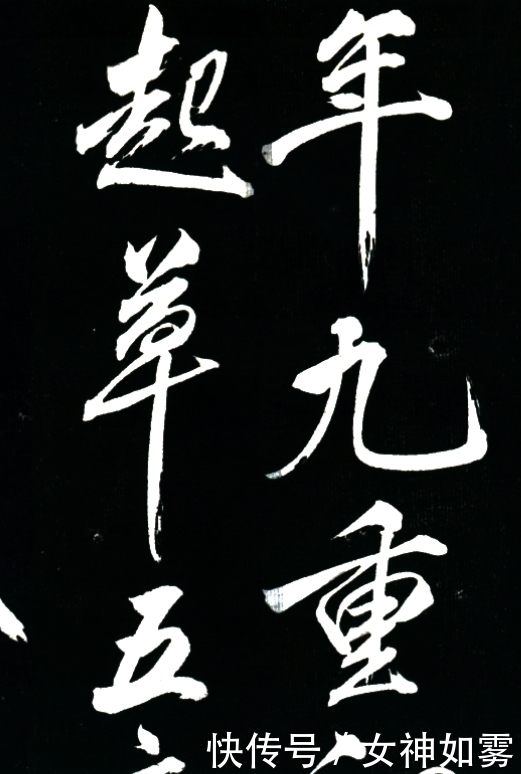 年九重
起草五
快传号/女神如雾